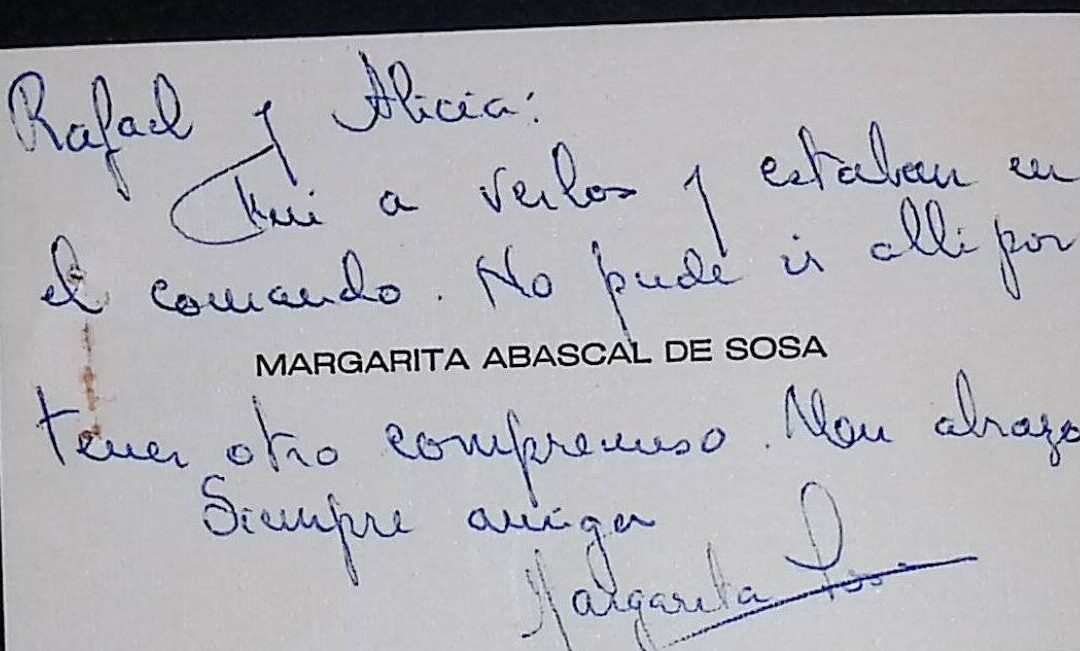 Rafael y Alicia:
Fui a verlos y estaban en
el comando. No pude ir alli por
MARGARITA ABASCAL DE SOSA
tener otro compromiso. Un abrazo
Siempre amiga
Margarita Sosa